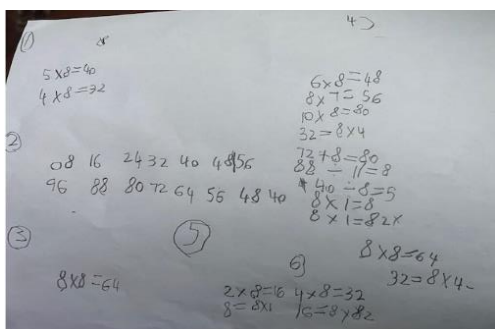 1)
5 x 8 = 40
4 x 8 = 32
2
08 16 24 32 40 48 56
96 88 80 72 64 56 48 40
3
8 x 8 = 64
4)
6 x 8 = 48
8 x 7 = 56
10 x 8 = 80
32 = 8 x 4
72 + 8 = 80
88 ÷ 11 = 8
40 ÷ 8 = 5
8 x 1 = 8
8 x 1 = 82x
8 x 8 = 64
32 = 8 x 4
5
6)
2 x 8 = 16 4 x 8 = 32
8 = 8x1 16 = 8 x 82